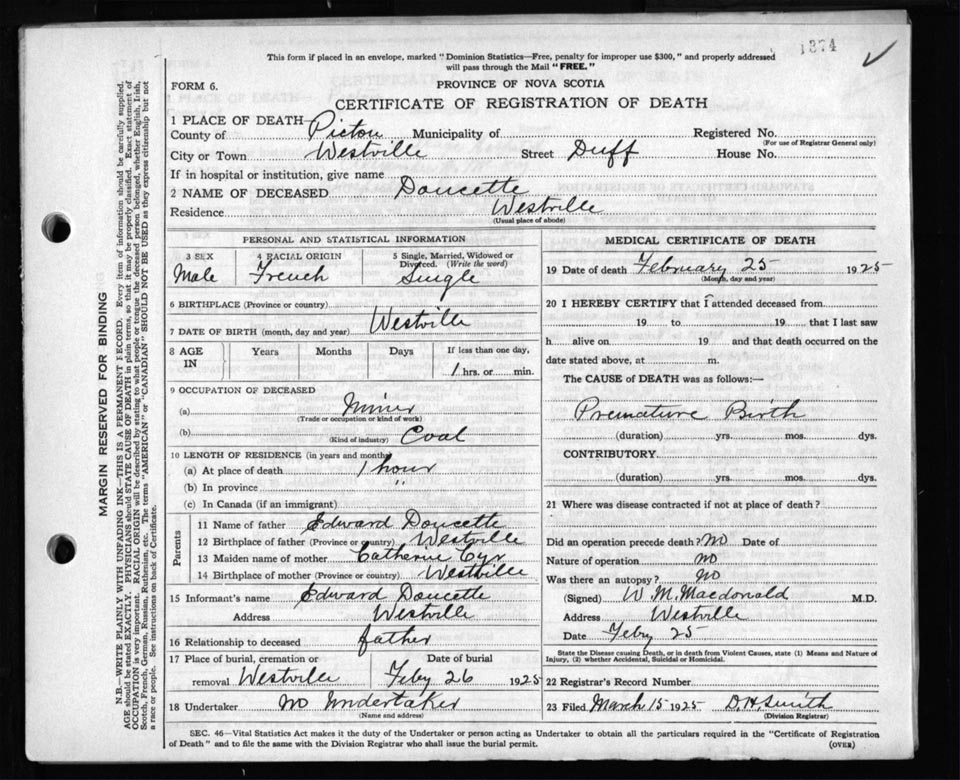 1374
This form if placed in an envelope, marked "Dominion Statistics—Free, penalty for improper use $300," and properly addressed
will pass through the Mail "FREE."
FORM 6.
PROVINCE OF NOVA SCOTIA
CERTIFICATE OF REGISTRATION OF DEATH
1 PLACE OF DEATH—
County of Pictou Municipality of Registered No.
(For use of Registrar General only)
City or Town Westville Street Duff House No.
If in hospital or institution, give name
2 NAME OF DECEASED Doucette
Residence Westville
(Usual place of abode)
PERSONAL AND STATISTICAL INFORMATION
3 SEX 4 RACIAL ORIGIN 5 Single, Married, Widowed or
Divorced. (Write the word)
Male French Single
6 BIRTHPLACE (Province or country)
Westville
7 DATE OF BIRTH (month, day and year)
8 AGE IN Years Months Days If less than one day,
1 hrs. or min.
9 OCCUPATION OF DECEASED
(a) Miner
(Trade or occupation or kind of work)
(b) Coal
(Kind of industry)
10 LENGTH OF RESIDENCE (in years and months)
(a) At place of death 1 hour
(b) In province "
(c) In Canada (if an immigrant)
Parents
11 Name of father Edward Doucette
12 Birthplace of father (Province or country) Westville
13 Maiden name of mother Catherine Cyr
14 Birthplace of mother (Province or country) Westville
15 Informant's name Edward Doucette
Address Westville
16 Relationship to deceased father
17 Place of burial, cremation or Date of burial
removal Westville Feby 26 1925
18 Undertaker no Undertaker
(Name and address)
MEDICAL CERTIFICATE OF DEATH
19 Date of death February 25 1925
(Month, day and year)
20 I HEREBY CERTIFY that I attended deceased from
19 to 19 that I last saw
h alive on 19 and that death occurred on the
date stated above, at m.
The CAUSE OF DEATH was as follows:—
Premature Birth
(duration) yrs. mos. dys.
CONTRIBUTORY
(duration) yrs. mos. dys.
21 Where was disease contracted if not at place of death?
Did an operation precede death? no Date of
Nature of operation no
Was there an autopsy? no
(Signed) W. M. Macdonald M.D.
Address Westville
Date Feby 25
State the Disease causing Death, or in death from Violent Causes, state (1) Means and Nature of
Injury, (2) whether Accidental, Suicidal or Homicidal.
22 Registrar's Record Number
23 Filed March 15 1925 D. H Smith
(Division Registrar)
SEC. 46—Vital Statistics Act makes it the duty of the Undertaker or person acting as Undertaker to obtain all the particulars required in the "Certificate of Registration
of Death" and to file the same with the Division Registrar who shall issue the burial permit. (OVER)
MARGIN RESERVED FOR BINDING
N.B.—WRITE PLAINLY WITH UNFADING INK—THIS IS A PERMANENT RECORD. Every item of information should be carefully supplied.
AGE should be stated EXACTLY. PHYSICIANS should STATE CAUSE OF DEATH in plain terms, so that it may be properly classified. Exact statement of
OCCUPATION is very important. RACIAL ORIGIN will be described by stating to what people or tongue the deceased person belonged, whether English, Irish,
Scotch, French, German, Russian, Ruthenian, etc. The terms "AMERICAN" or "CANADIAN" SHOULD NOT BE USED as they express citizenship but not
a race or people. See instructions on back of Certificate.